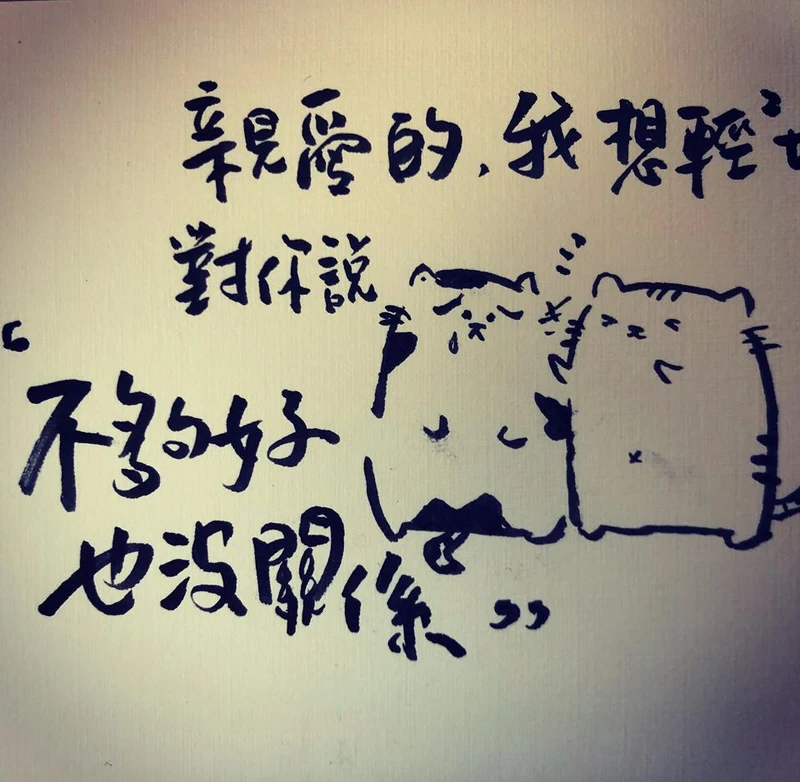 親愛的,我想輕
對你說
“不夠好
也沒關係”